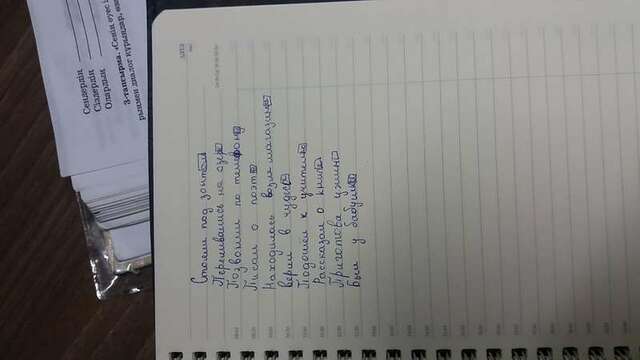 Сендердің
Сіздердің
Олардың
3-тапсырма. «Сенің әуес
рыңмен диалог құрыңдар,
ДАТА
Стояли под зонтом
Переливались на озере
Позвонил по телефону
Писали о поэте
Находилась возле магазина
верил в чудеса
Подошел к учителю
Рассказал о книге
Приготова ужин
Был у бабушки